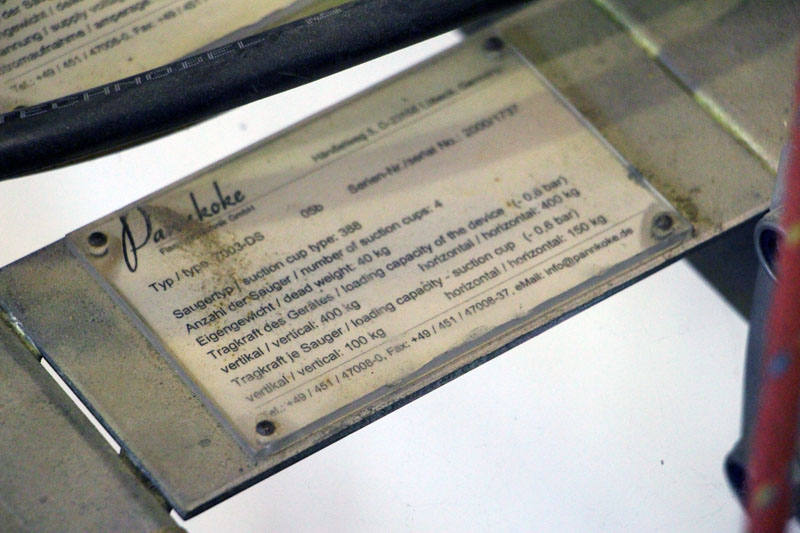 / supply
Stromaufnahme / amperage
Tel.: +49 / 451 / 47008-0, Fax: +49 / 451
Pannkoke
GmbH
Händelweg
Serien-Nr./serial No.: 2000/1737
Typ / type: 7003-DS 05b
Saugertyp / suction cup type: 388
Anzahl der Sauger / number of suction cups: 4
Eigengewicht / dead weight: 40 kg
Tragkraft des Gerätes / loading capacity of the device (- 0,6 bar)
vertikal / vertical: 400 kg horizontal / horizontal: 400 kg
Tragkraft je Sauger / loading capacity - suction cup (- 0,6 bar)
vertikal / vertical: 100 kg horizontal / horizontal: 150 kg
Tel.: +49 / 451 / 47008-0, Fax: +49 / 451 / 47008-37, eMail: info@pannkoke.de